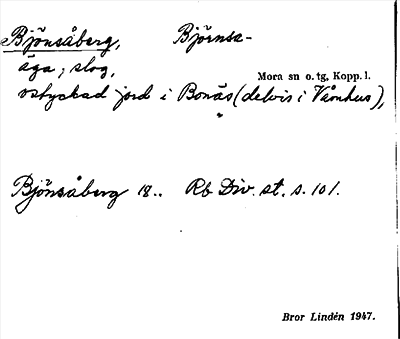 Björnsåberg, Björnsa-
äga; skog,
Mora sn o. tg, Kopp. l.
ostyckad jord i Bonäs (delvis i Våmhus),
Björnsåberg 18.. Rb Div. st. s. 101.
Bror Lindén 1947.